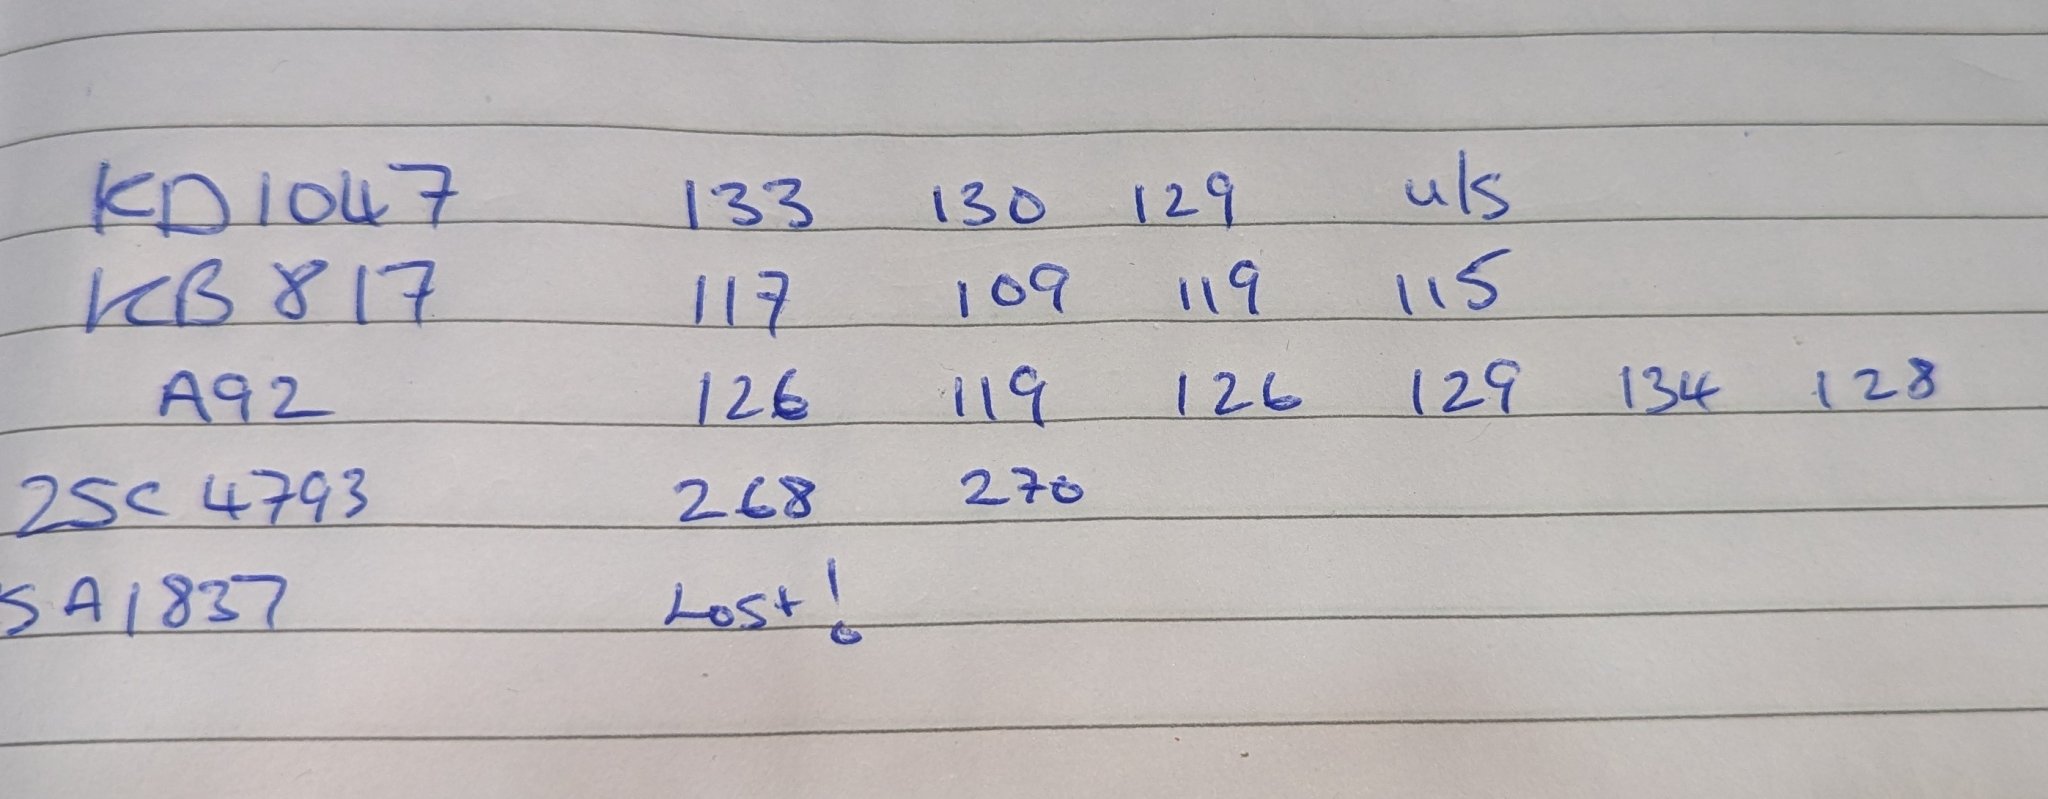 KD1047 133 130 129 u/s
KB817 117 109 119 115
A92 126 119 126 129 134 128
2SC 4793 268 270
SA1837 Lost!